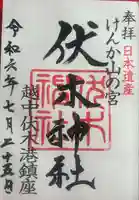 奉拝
日本遺産
けんか山の宮
伏木神社
越中伏木港鎮座
令和六年七月二十五日